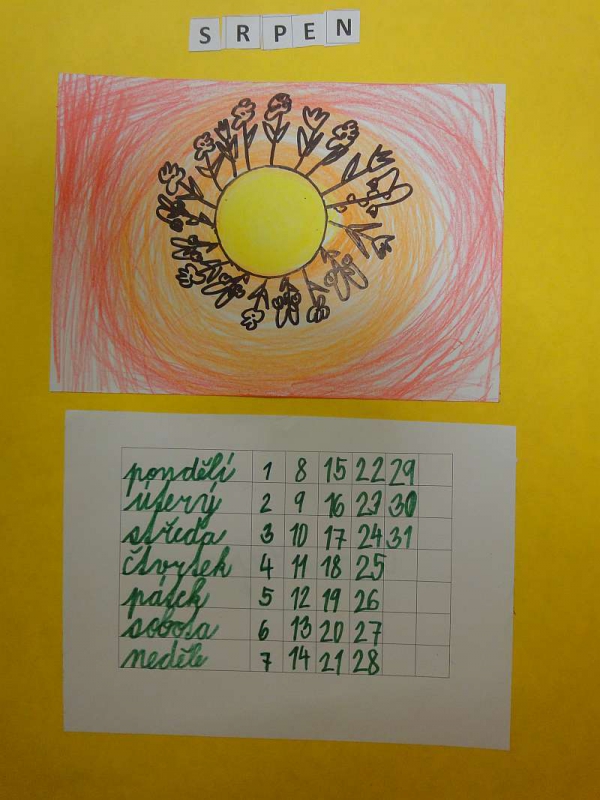 SRPEN
pondělí 1 8 15 22 29
úterý 2 9 16 23 30
středa 3 10 17 24 31
čtvrtek 4 11 18 25
pátek 5 12 19 26
sobota 6 13 20 27
neděle 7 14 21 28